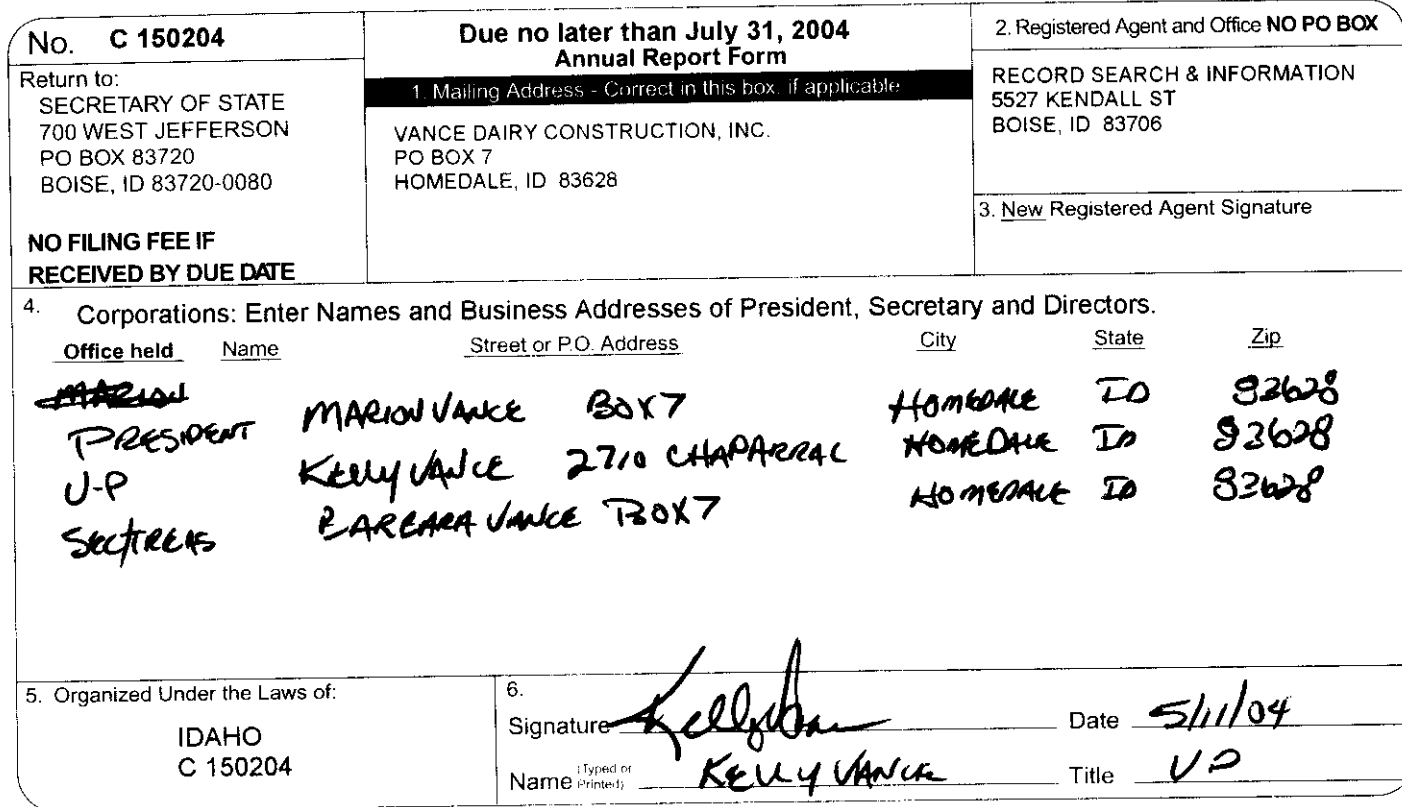 No. C 150204
Return to:
SECRETARY OF STATE
700 WEST JEFFERSON
PO BOX 83720
BOISE, ID 83720-0080
NO FILING FEE IF
RECEIVED BY DUE DATE
Due no later than July 31, 2004
Annual Report Form
1. Mailing Address - Correct in this box, if applicable
VANCE DAIRY CONSTRUCTION, INC.
PO BOX 7
HOMEDALE, ID 83628
2. Registered Agent and Office NO PO BOX
RECORD SEARCH & INFORMATION
5527 KENDALL ST
BOISE, ID 83706
3. New Registered Agent Signature
4. Corporations: Enter Names and Business Addresses of President, Secretary and Directors.
Office held Name Street or P.O. Address City State Zip
MARION
PRESIDENT MARION VANCE BOX 7 HOMEDALE ID 83628
V-P KELLY VANCE 2710 CHAPARRAL HOMEDALE ID 83628
SEC/TREAS BARBARA VANCE BOX 7 HOMEDALE ID 83628
5. Organized Under the Laws of:
IDAHO
C 150204
6.
Signature Kelly Vance Date 5/11/04
Name (Typed or Printed) KELLY VANCE Title VP